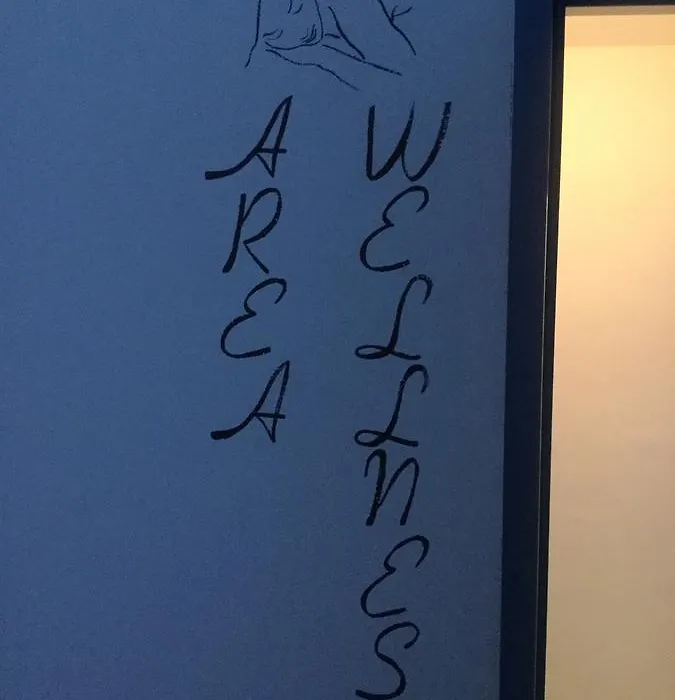 AREA
WELLNES